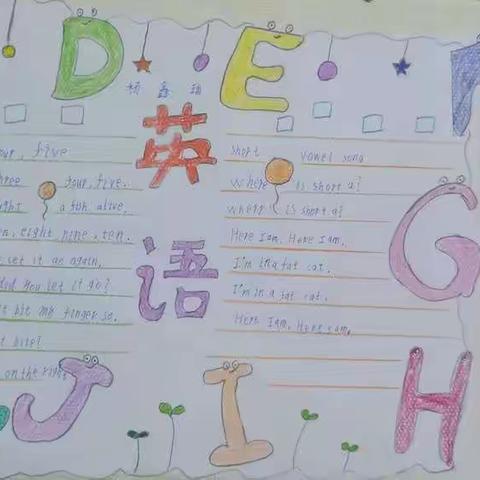 D E
杨鑫
英语
our, five
hree four, five.
ght a fish alive,
n, eight nine, ten.
let it go again.
did you let it go?
it bit my finger so.
t bite?
on the right
short vowel song
where is short a?
where is short a?
Here I am, Here I am.
I'm in a fat cat.
I'm in a fat cat.
Here I am, Here I am.
G
J I H